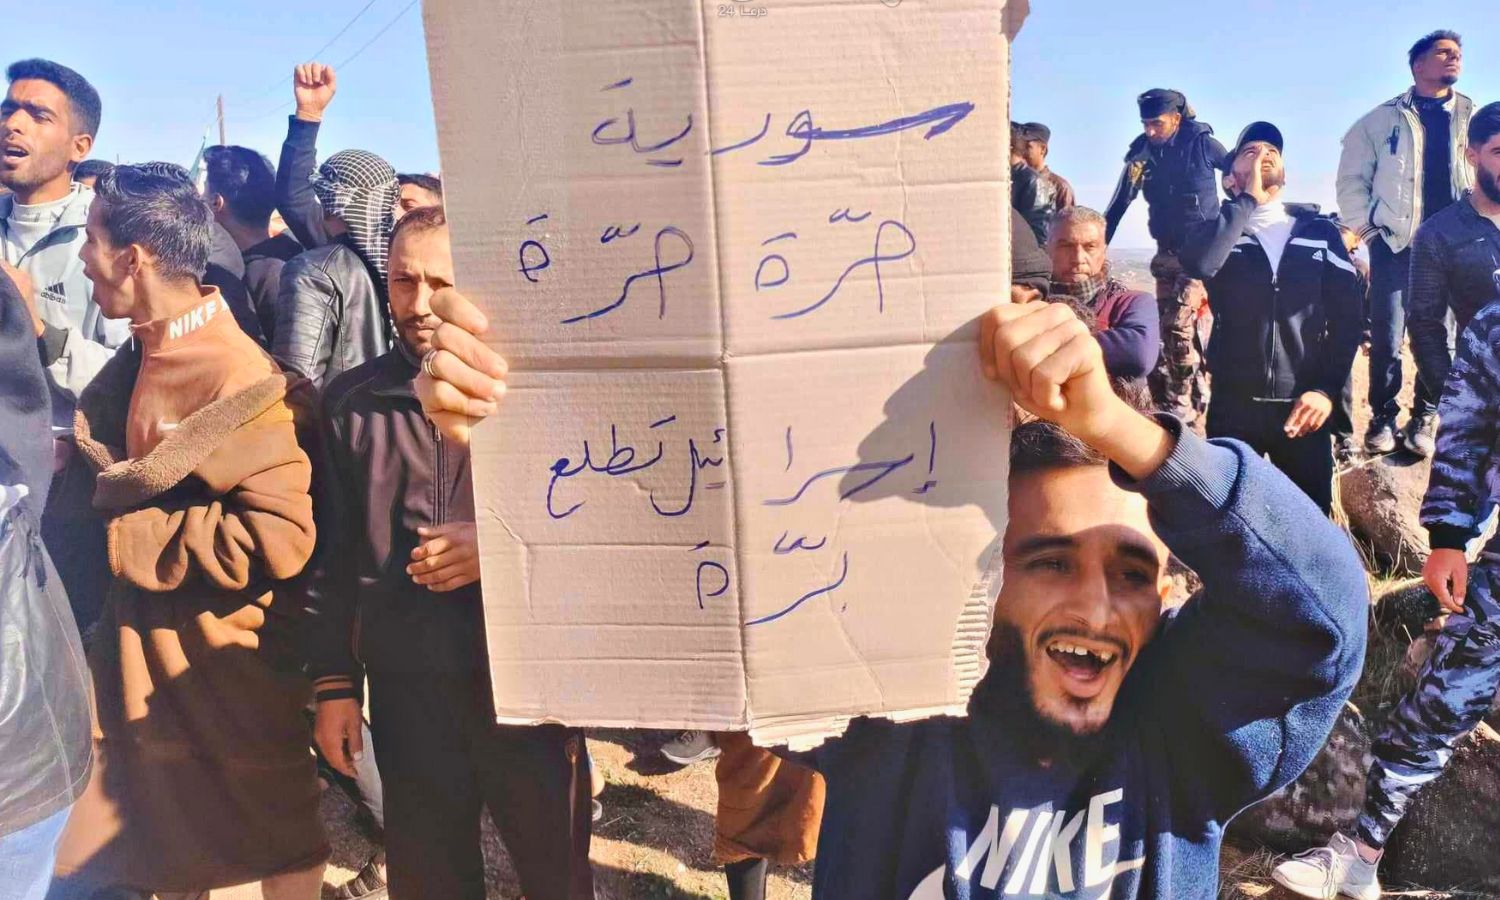 درعا 24
سورية
حرّة حرّة
إسرائيل تطلع
برّة
NIKE
adidas
NIKE